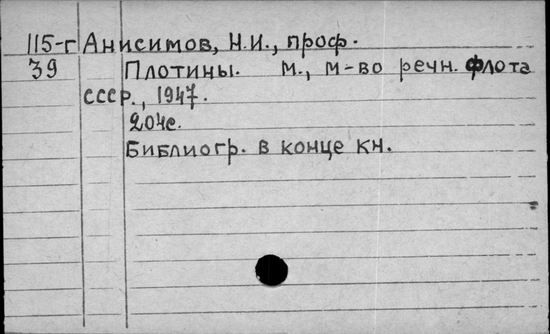 115-г Анисимов, Н.И., проф.
39 Плотины. М., М-во речн. флота
СССР., 1947.
204с.
Библиогр. в конце кн.